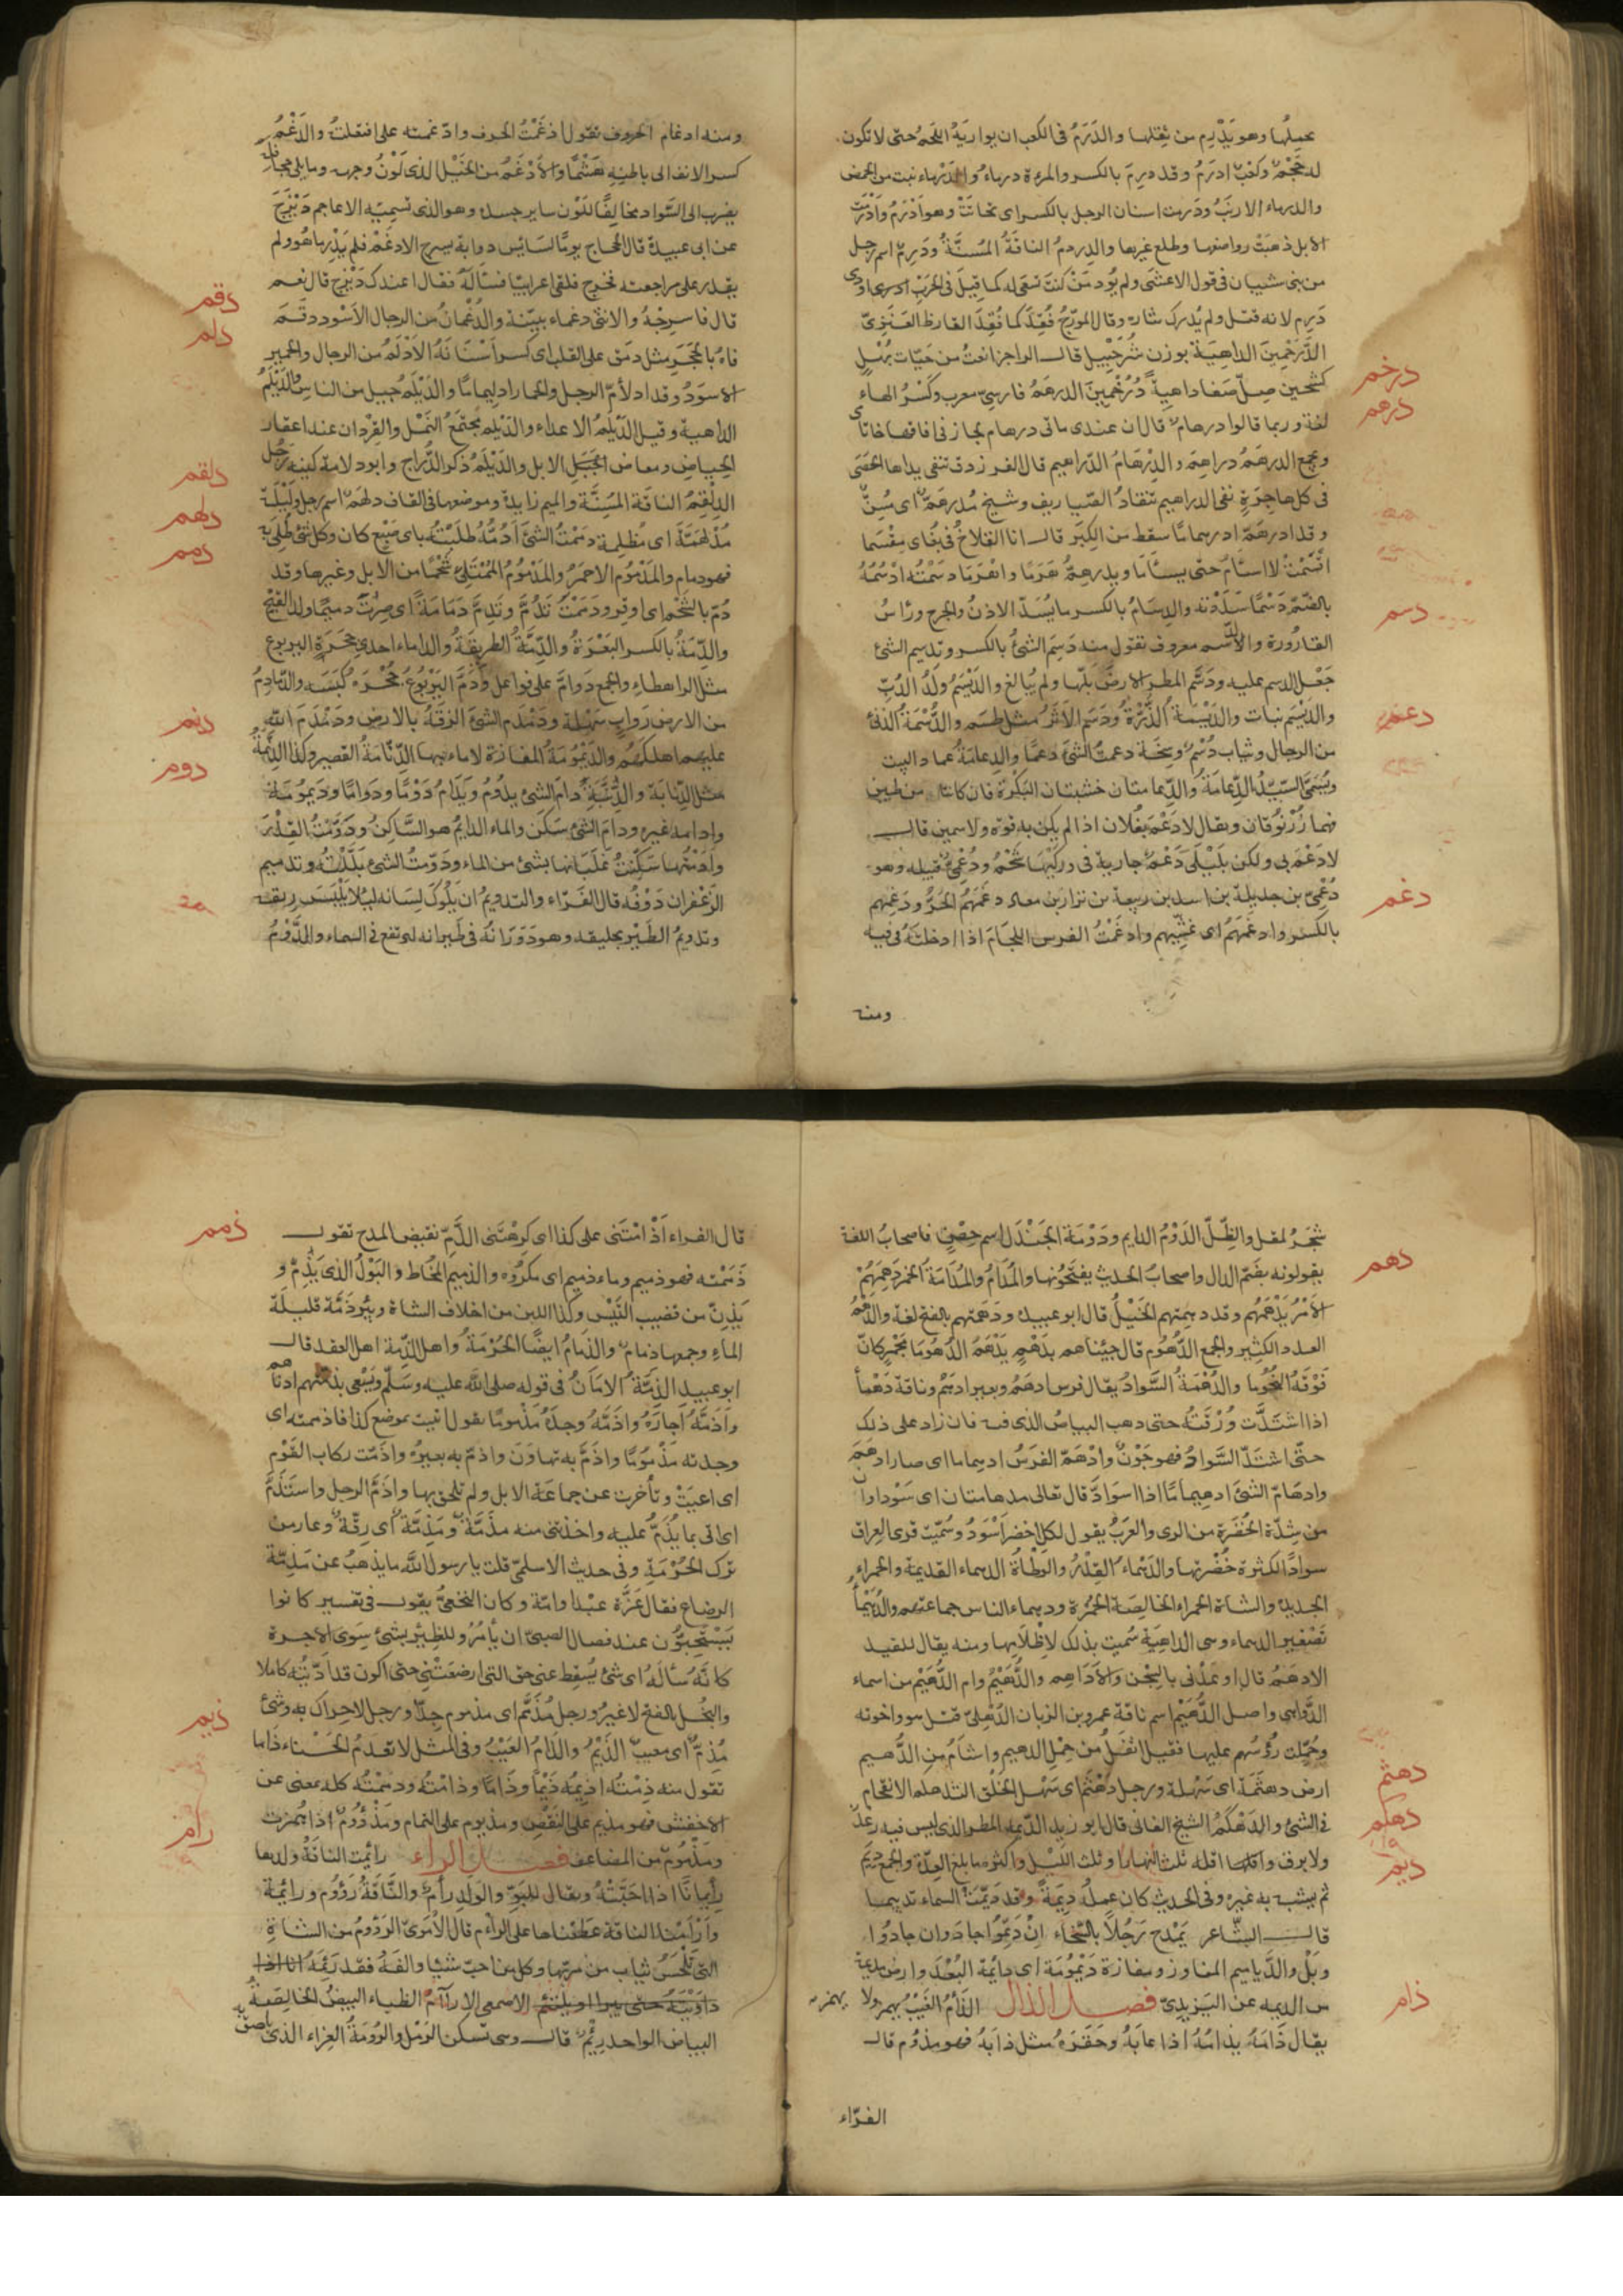 بحيلها وهو يدرم من ثقلها والدَّرَمُ فى الكعب ان يواريَهُ اللحم حتى لا تكون
له حَجْمٌ وكعبٌ ادرَمُ وقد درِمَ بالكسر والمرءة درماءُ والدَّرماء نبت من الحمض
والدرماء الارنبُ ودَرِمت اسنان الرجل بالكسر اى تحاتّت وهو اَدْرَمُ وَاَدْرَمَتِ
الابل ذهبَتْ رواضعها وطلع غيرها والدِردمُ الناقَةُ المُسنَّةُ ودَرِمٌ اسم رجل
من بنى شيبان فى قول الاعشى ولم يُودِ مَنْ كنتَ تسعَى له كما قيلَ فى الحَرْبِ اودى
دَرِم لانه قتل ولم يُدرك ثاره وقال المورّج فُقِدَ كما فُقِدَ القارظ العَنَزِىّ
درخم
الدُّرَخْمِينَ الداهيَة بوزن شُرَحْبِيل قال الراجز انعتُ من حَيّات بُهْلٍ
كشحين صِلَّ صَفا داهيةً دُرَخْمِينَ الدرهَمُ فارسىّ معرب وكَسْرُ الهاء
درهم
لغة وربما قالوا درهامٌ قال ان عندى مائى درهام لجاز فى افاقها خاتا مى
وجمع الدرهَمُ دراهِمُ والدِرْهَامُ الدراهيم قال الفرزدق تنفى يداها الحَصَى
فى كل هاجرَةٍ نفى الدراهيم تنقادُ الصّياريف وشيخ مُدرهَمٌّ اى مُسِنٌّ
وقد ادرهَمَّ ادرهماما سقط من الكِبَر قال انا القلاخُ فى بُغَاى مِقْسَما
اقْسَمْتُ لا اسأَم حتى يسأَما ويدرهِمَّ هَرَمًا وانهَرَما دَسَمْتُه ادْسُمُهُ
دسم
بالضَّمِّ دَسْمًا سَدَدْته والدِسَامُ بالكسر ما يُسَدّ الاذنُ والجرح ورأسُ
القارُورة والدَّسَم معروف تقول منه دَسِمَ الشئُ بالكسر وتدسيم الشئ
جَعْل الدسم عليه ودَسَّم المطر الارضَ بلّها ولم يُبالغ والدَيْسَمُ ولَدُ الدُبّ
والديْسَم نبات والدَيْسَمة الذُّرَةُ ودَسَم الاَثَرُ مثل طسَم والدُّسْمَةُ الدنئ
دعم
من الرجال وثياب دُسْمٌ وسِخَة دعمتُ الشئَ دعمًا والدِعامَةُ عماد البيت
ويُسمَّى السَيّدُ الدِّعامَةُ والدِّعامتان خشبتان البَكْرة فان كانتا من طين
فهما زُرْنُوقان ويقال لا دَعْمَ بفُلان اذا لم يكن به قوة ولا سمين قال
لا دَعْمَ بى ولكن بلَيْلَى دَعْم جارية فى وركَيْهَا شَحْمُ ودُعْمىٌّ قبيلة وهو
دُعْمىّ بن جديلة بن اسد بن ربيعة بن نزار بن معد دغَمَهُم الحَرُّ ودَغِمهم
دغم
بالكسر وادغَمَهُم اى غشِيَهم وادغَمْتُ الفرس اللجَامَ اذا ادخلتهُ فى فيه
ومنه
ومنه ادغام الحروف تقول ادْغَمْتُ الحرف وادّغمته على افتعلتُ والدَغْمُ
كسر الانف الى باطنِهِ هَشْمًا والاَدْغَمُ من الخَيْل الذى لَوْنُ وجهه وما يلى جحافله
يضرب الى السَّواد مخالِفًا للَوْن ساير جسده وهو الذى تسمِيّه الاعاجم دَيْزَجَ
عن ابى عبيدة قال الحجاج يومًا لسَائِس دوابه يسرج الادغَمْ فلم يَدْرِ ما هُوَ ولم
يقدر على مراجعته فخرج فلقى اعرابيّا فسأَلَهُ فقال اعندك دَيْزج قال نعم
قال فاسرِجْهُ والانثى دغماء بيِّنة والدُغْمانُ من الرجال الاَسْود دقَمَ
دقم
فاهُ بالحجَرِ مثل دمَق على القلب اى كسر اَسْنَانَهُ الاَدْلَمُ من الرجال والحمير
دلم
الاسوَدُ وقد ادلأمّ الرجل والحمار ادليمامًا والدَيْلَمُ جيل من الناس والدَيْلَمُ
الداهية وقيل الدَيْلَمُ الاعداء والدَيْلم مجتَمَعُ النَمْل والقِرْدان عند اعقار
الحِياض ومعاض الجَبَل الابل والدَيْلَمُ ذكر الدُّرّاج وابو دلامة كنية رَجُل
دلقم
الدِلْقِمُ الناقَة المُسِنَّة والميم زايدة وموضعها فى القاف دلهَمٌ اسم رجل ولَيْلَة
دلهم
مُدْلَهمّة اى مُظلمة دمَمْتُ الشئَ اَدُمُّهُ طلَيْتُه باى صَبْغ كان وكل شئ طُلِىَ به
دمم
فهو دمام والمَدْمُوم الاحمَرُ والمَدْمُومُ المُمْتَلِئ شَحْمًا من الابل وغيرها وقد
دُمَّ بالشَّحْم اى اوقِر ودَمَمْتُ تَدُمُّ وتَدِمُّ دَمَامَةً اى صِرْتَ دميمًا
والدِّمَةُ بالكسر البَعَرَةُ والدِّمَّةُ الطريقَةُ والداماء احدى جحَرَة اليربوع
مثل الراهطاء والجمع دَوَامَّ على فواعل ودَمَّ اليَرْبُوعُ جُحْرَهُ كَبَسَه والدَّيامِيمُ
من الارض رَوابٍ سَهْلة ودَمْدَمَ الشئَ الزقَهُ بالارض ودَمْدَمَ الله
دنم
عليهم اهلكَهُم والدَيْمُومَةُ المفازَة لا ماء بها الدِّنّامَةُ القصير وكذا الدِّنَّمَةُ
دوم
مثل الدِّنّابَة والدِّنَّبَةُ دَامَ الشئ يدُومُ ويَدَامُ دَوْمًا ودَوَامًا ودَيْمُومَةً
وادامه غيره ودامَ الشئ سَكَن والماء الدايم هو السَّاكِنُ ودَوَّمْتُ القِدْرَ
واَدَمْتُها سَكَّنْتُ غليَانَها بشئ من الماء ودَوّمتُ الشئَ بلَّلْتُه وتدويم
الزعْفران دَوْفُهُ قال الفَرّاء والتدويمُ ان يَلُوكَ لِسَانه لئلا يَيْبَسَ ريقه
وتدويمُ الطَيْر تحليقه وهو دَوَرَانُهُ فى طَيرانه لترتفع فى السماء والدَّوْمُ
شجَرُ المقل والظِّلّ الدَوْمُ الدايم ودَوْمَة الجَنْدَل اسم حِصْنٍ فاصحابُ اللغة
دهم
يقولونه بضَمِّ الدال واصحابُ الحديث يفتَحُونها والمُدَامُ والمُدَامَة الخمر دَهِمَهُمْ
الاَمْرُ يَدْهَمُهُم وقد دهِمَتهم الخَيْلُ قال ابو عبيدة ودَهَمتهم بالفتح لغة والدَّهْمُ
العدد الكثير والجمع الدُّهُوم قال جئنا هم بدَهْمٍ يَدْهَمُ الدُّهُومَا مَجْرٍ كانّ
فَوْقَهُ النُّجُومَا والدُهْمَةُ السَّوادُ يقال فرس ادهَمُ وبعير ادهَمُ وناقة دَهْمأ
اذا اشتدَّت وُرْقَتُه حتى ذهب البياضُ الذى فيه فان زاد على ذلك
حتّى اشتَدّ السَّوادُ فهو جَوْنٌ واِدْهَمَّ الفَرَسُ ادهماما اى صار ادهَمَ
وادهَامّ الشئَ ادهيمامًا اذا اسوَادَّ قال تعالى مدهامتان اى سَوْداوان
من شِدّة الخُضْرَة من الرى والعرَبُ يقول لكل اخضَر اَسْوَدُ وسُمّيت قرى العِراق
سوادًا لكثرة خُضْرتها والدَهْماءُ القِدْرُ والوَطْاَةُ الدهماء القديمة والحمراءُ
الجديدة والشاة الحمراء الخالِصَة الحُمْرة ودهماء الناس جماعتهم والدُهَيْمأ
تَصْغير الدهماء وهى الداهيَةُ سُمّيت بذلك لاِظْلامِها ومنه يقال للقيد
الادهَمُ قال اوعَدَنى بالسِجْن والاَدَاهِم والدُّهَيْمُ وام الدُّهَيْم من اسماء
الدَّواهى واصل الدُّهَيْم اسم ناقة عمرو بن الزبان الذهلىّ قتل هو واخوته
وحُمِلت رُؤسُهم عليها فقيل اثقَلُ من حِمْلِ الدهيم واشأَمُ من الدُّهَيم
دهثم
ارض دهثَمَة اى سَهْلة ورجل دَهْثَم اى سَهْل الخُلُق التَدهكُم الانقحام
دهكم
فى الشئ والدَهْكَمُ الشيخ الفانى قال ابو زيد الدّيمة المطر الذى ليس فيه رعد
ديم
ولا برق واقله ثلث النهار او ثلث اللَيْل واكثره ما بلغ العِدّة والجمع دِيَمٌ
ثم يشبه به غيره وفى الحديث كان عمله دِيمَةً وقد ديَّمَت السماء تدييمًا
قال الشّاعر يَمْدح رَجُلاً بالسَّخاء اِنْ دَيّمُوا جادَ وان جادُوا
وَبَلْ والدَّياميم المفاوز ومفازة دَيْمُومَة اى دايِمَة البُعْد وارض مديمة
من الديمه عن اليزيدىّ فصل الذال الذَأْمُ العَيْبُ يهمز ولا يهمز
ذأم
يقال ذَأمَهُ يذأمُهُ اذا عابَهُ وحَقَرَهُ مثل ذأبَهُ فهو مذؤم قال
الفرّاء
ذمم
قال الفراء اَذْأَمْتَنى على كذا اى كرهْتَنى الذَّمّ نقيض المدح تقول
ذَمَمْته فهو ذميم وماء ذميم اى مكرُوه والذميم المُخاط والبَوْلُ الذى يَذِمُّ و
يَذِنّ من قضيب التَيْس وكذا اللبن من اخلاف الشاة وبِئر ذَمَّة قليلَة
الماءِ وجمعها ذمامٌ والذِمَامُ ايضًا الحُرْمَةُ واهل الذِمّة اهل العقد قال
ابو عبيد الذِمَّةُ الاَمَانُ فى قوله صلى الله عليه وسَلَّم ويَسْعَى بذمّتهم ادناهم
واَذَمَّهُ اجَارَهُ واَذَمَّهُ وجدَهُ مَذْمومًا يقول اتيت موضع كذا فاذممته اى
وجدته مَذْمُومًا واذَمَّ به تهاوَنَ واذمّ به بعيرُه واذَمّت ركاب القَوْم
اى اعيَتْ وتأخرت عن جماعَة الابل ولم تلحق بها واَذَمَّ الرجل واستَذَمَّ
اى اتى بما يُذَمُّ عليه واخذتنى منه مذَمَّةٌ ومَذِمَّةٌ اى رِقّةٌ وعار من
ترك الحُرْمَةِ وفى حديث الاسلمىّ قلت يا رسول الله ما يذهبُ عن مَذمّة
الرضاع فقال غرّة عبدا وامَة وكان النخعىُّ يقول فى تفسيره كانوا
يَسْتحِبُّون عند فصال الصبىّ ان يأمُرُوا للظئر بشئ سوى الاجرة
كانّه سألَهُ اى شئ يُسقِط عنى حق التى ارضعَتْنى حتى اكون قد اَدّيتُه كاملا
والبُخْل بالفتح لا غير ورجل مُذَمَّم اى مذموم جِدًّا ورجل لا حراك به وشئ
ذيم
مُذِمٌّ اى معيبٌ الذَيْمُ والذامُ العَيْبُ وفى المثل لا تعدمُ الحَسْناء ذَامًا
تقول منه ذِمْتُه اذيمُه ذَيْمًا وذَامًا وذأمْتُه وذممْتُه كله بمعنى عن
الاخفش فهو مذيم على النَقْصِ ومذيوم على التمام ومَذْؤُومٌ اذا هُمزت
رأم
ومذمُومٌ من المضاعف فصل الراء رائِمَت الناقَةُ ولدها
رئمانًا اذا احبَّتْهُ ويقال للبوِّ والولدِ رأمٌ والنَّاقَةُ رَؤُوم ورائِمة
وَاَرْأَمْنَا الناقة عطَفْناها على الرأم قال الاُمَوىّ الرَؤُومُ من الشاة
التى تَلْحَسُ ثياب من مرّبها وكل من احبّ شيئا والفهُ فقد رَئِمَهُ
الاصمعى الارآم الظباء البيضُ الخالِصَةُ
البياض الواحد رِئْمٌ قال وهى تسكن الرَمْل والرُؤمَةُ الغِراء الذى يلصق